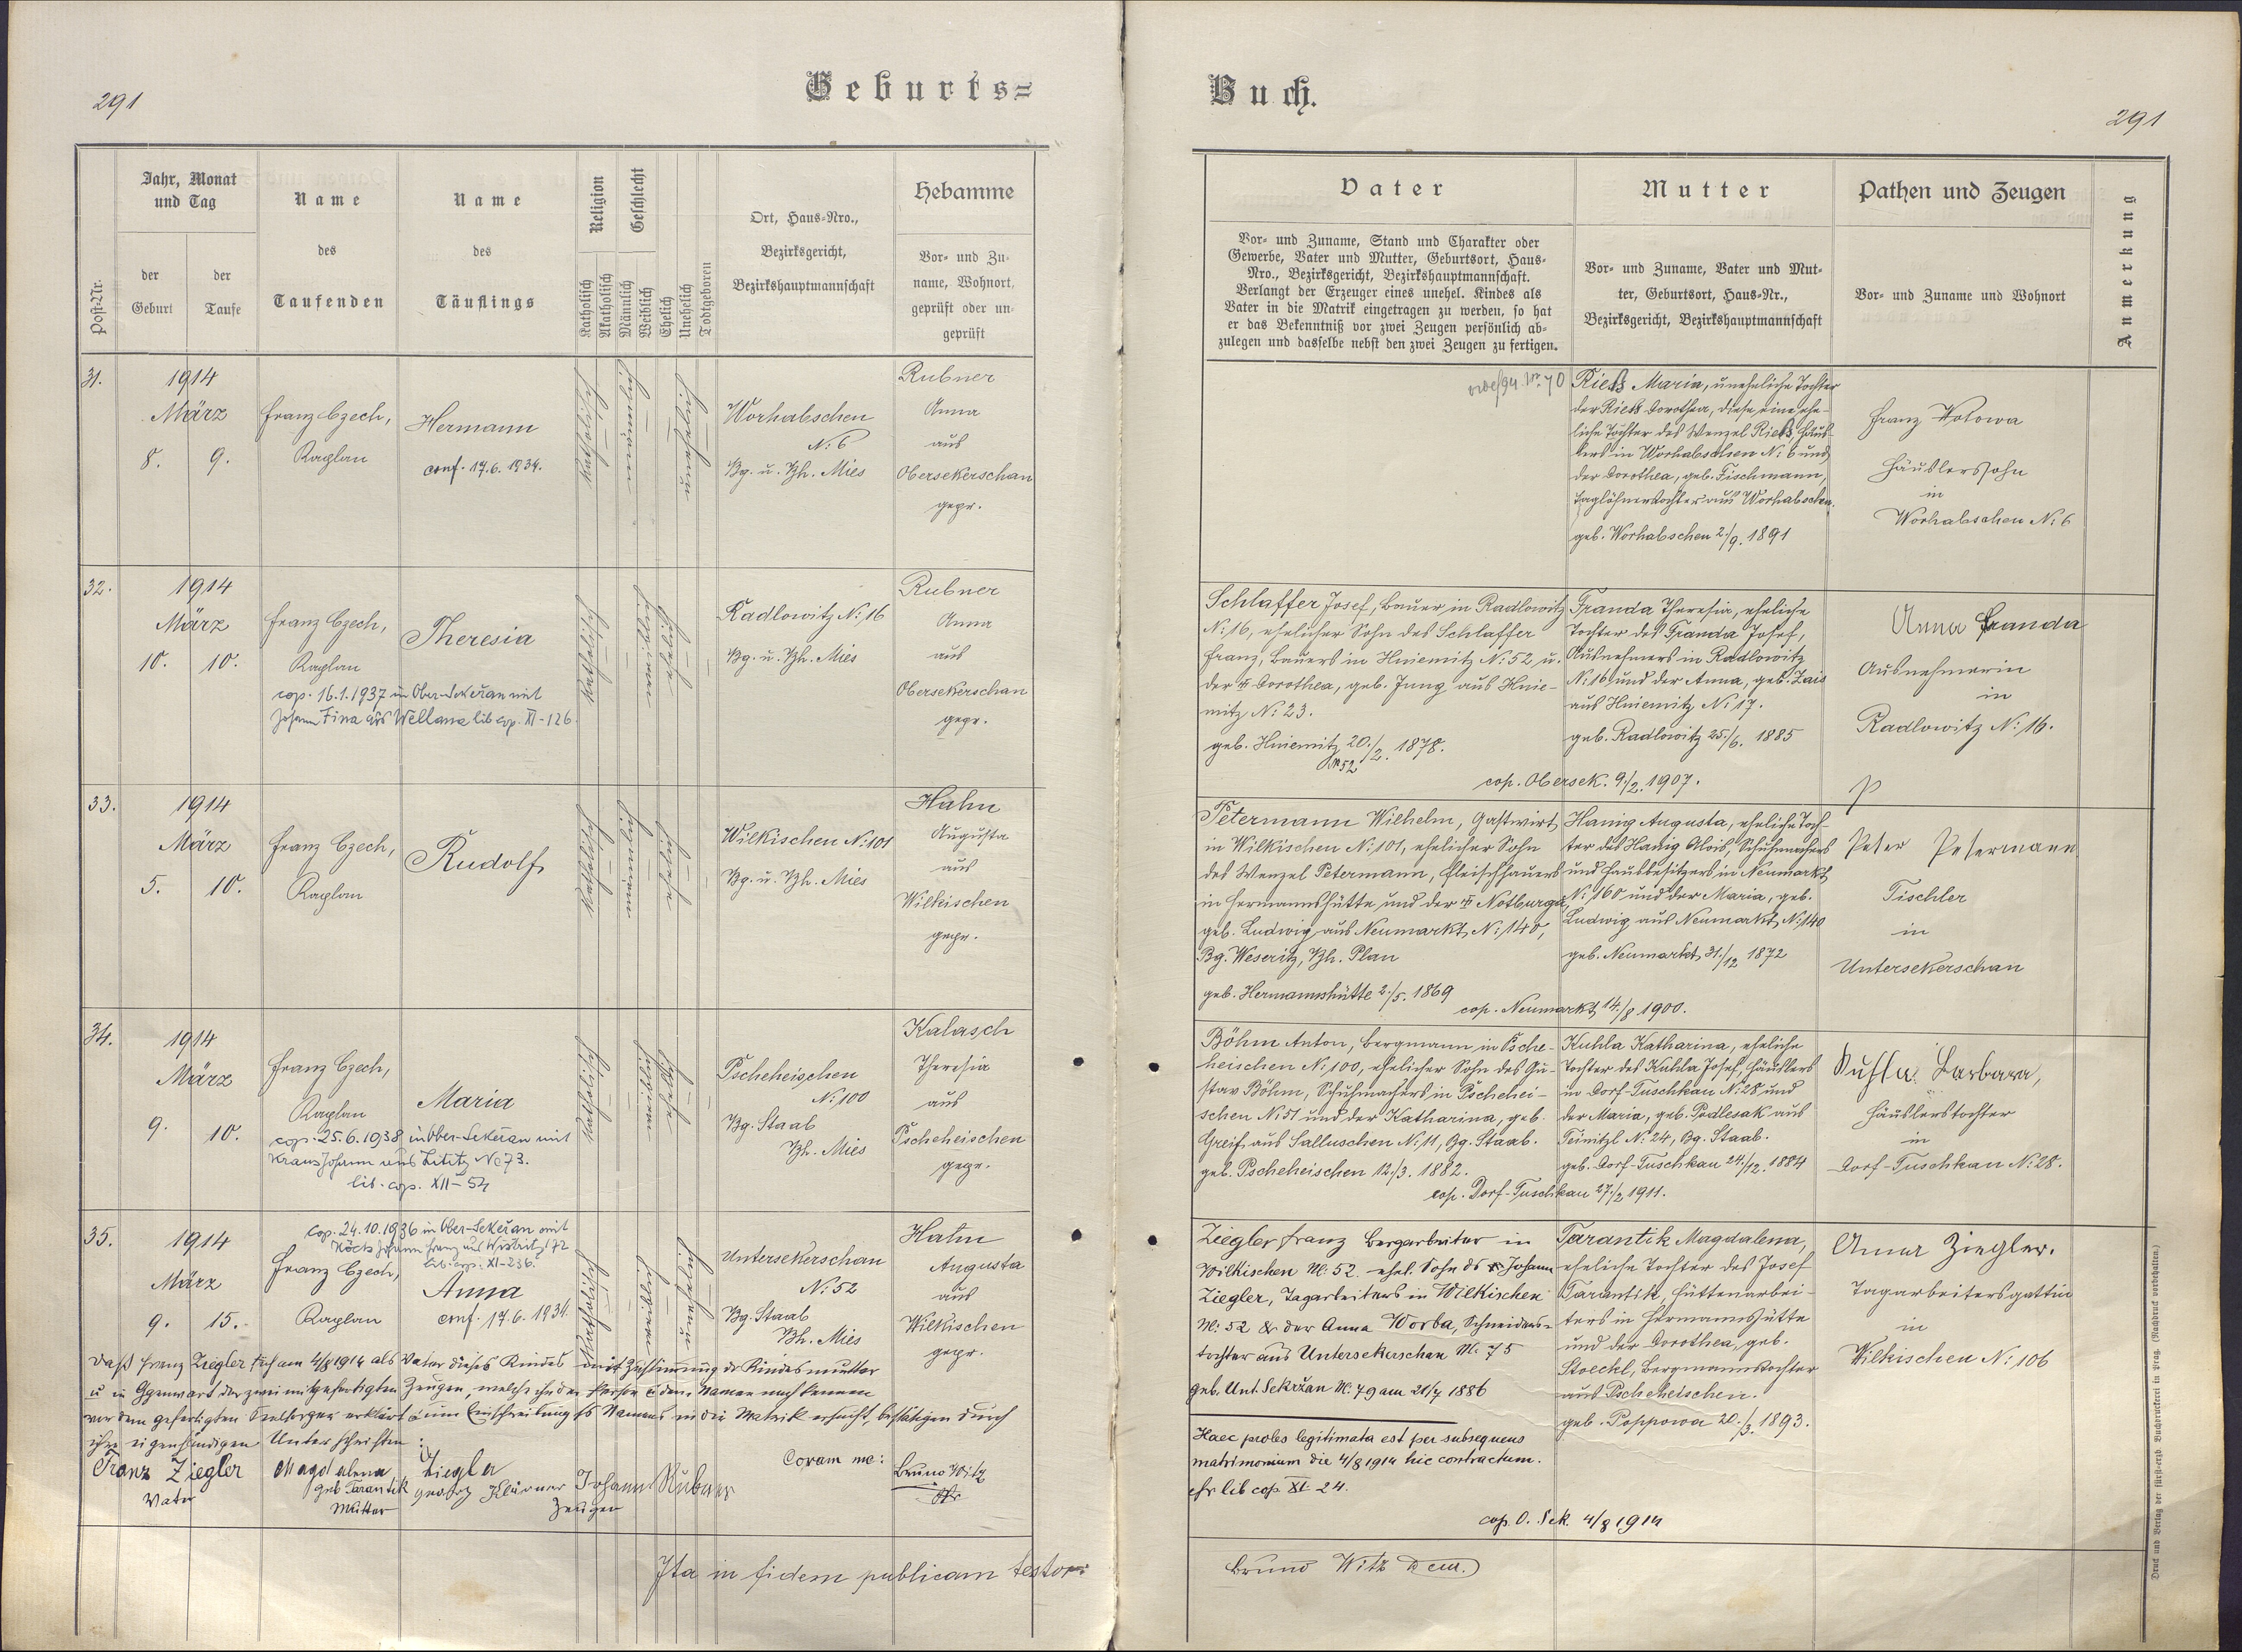 291
Geburts=
Buch.
291
Post-Nr.
Jahr, Monat
und Tag
der
Geburt
der
Taufe
Name
des
Taufenden
Name
des
Täuflings
Religion
Katholisch
Akatholisch
Geschlecht
Männlich
Weiblich
Ehelich
Unehelich
Todtgeboren
Ort, Haus-Nro.,
Bezirksgericht,
Bezirkshauptmannschaft
Hebamme
Vor- und Zu-
name, Wohnort,
geprüft oder un-
geprüft
Vater
Vor- und Zuname, Stand und Charakter oder
Gewerbe, Vater und Mutter, Geburtsort, Haus-
Nro., Bezirksgericht, Bezirkshauptmannschaft.
Verlangt der Erzeuger eines unehel. Kindes als
Vater in die Matrik eingetragen zu werden, so hat
er das Bekenntniß vor zwei Zeugen persönlich ab-
zulegen und dasselbe nebst den zwei Zeugen zu fertigen.
Mutter
Vor- und Zuname, Vater und Mut-
ter, Geburtsort, Haus-Nr.,
Bezirksgericht, Bezirkshauptmannschaft
Pathen und Zeugen
Vor- und Zuname und Wohnort
Anmerkung
31.
1914
März
8. 9.
Franz Czech,
Kaplan
Hermann
conf. 17.6.1934.
Katholisch
Männlich
Unehelich
Worhabschen
N: 6
Bg. u. Bh. Mies
Rubner
Anna
aus
Obersekerschan
gepr.
Rieß Maria, uneheliche Tochter
der Rieß Dorothea, diese eine ehe-
liche Tochter des Wenzel Rieß, Häus-
lers in Worhabschen N: 6 und
der Dorothea, geb. Fischmann,
Taglöhnerstochter aus Worhabschen.
geb. Worhabschen 2./9. 1891
Franz Wotowa
Häuslerssohn
in
Worhabschen N: 6
32.
1914
März
10. 10.
Franz Czech,
Kaplan
cop. 16.1.1937 in Ober-Sekeřan mit
Johann Fina aus Wellana lib. cop. XI-126.
Theresia
Radlowitz N: 16
Bg. u. Bh. Mies
Rubner
Anna
aus
Obersekerschan
gepr.
Schlaffer Josef, Bauer in Radlowitz
N: 16, ehelicher Sohn des Schlaffer
Franz, Bauers in Hniemitz N: 52 u.
der Dorothea, geb. Jung aus Hnie-
mitz N: 23.
geb. Hniemitz 20./2. 1878.
N 52
Franda Theresia, eheliche
Tochter des Franda Josef,
Ausnehmers in Radlowitz
N: 16 und der Anna, geb. Zais
aus Hniemitz N: 17.
geb. Radlowitz 25./6. 1885
cop. Obersek. 9./2. 1907.
Anna Franda
Ausnehmerin
in
Radlowitz N: 16.
33.
1914
März
5. 10.
Franz Czech,
Kaplan
Rudolf
Wilkischen N: 101
Bg. u. Bh. Mies
Hahn
Augusta
aus
Wilkischen
gepr.
Petermann Wilhelm, Gastwirt
in Wilkischen N: 101, ehelicher Sohn
des Wenzel Petermann, Fleischhauers
in Hermannshütte und der Notburga,
geb. Ludwig aus Neumarkt N: 140,
Bg. Weseritz, Bh. Plan
geb. Hermannshütte 2./5. 1869
Hanig Augusta, eheliche Toch-
ter des Hanig Alois, Schuhmachers
und Hausbesitzers in Neumarkt
N: 160 und der Maria, geb.
Ludwig aus Neumarkt N: 140
geb. Neumarkt 31./12 1872
cop. Neumarkt 14./8 1900.
Peter Petermann
Tischler
in
Untersekerschan
34.
1914
März
9. 10.
Franz Czech,
Kaplan
cop. 25.6.1938 in Ober-Sekeřan mit
Kraus Johann aus Lititz Nc 73.
lib. cop. XII-54
Maria
Pscheheischen
N: 100
Bg. Staab
Bh. Mies
Kalasch
Theresia
aus
Pscheheischen
gepr.
Böhm Anton, Bergmann in Psche-
heischen N: 100, ehelicher Sohn des Gu-
stav Böhm, Schuhmachers in Pschehei-
schen N: 51 und der Katharina, geb.
Greif aus Salluschen N: 11, Bg. Staab.
geb. Pscheheischen 12./3. 1882.
Kuhla Katharina, eheliche
Tochter des Kuhla Josef, Häuslers
in Dorf-Tuschkau N: 28 und
der Maria, geb. Podlesak aus
Teinitzl N: 24, Bg. Staab.
geb. Dorf-Tuschkau 24./12. 1884
cop. Dorf-Tuschkau 27./2 1911.
Kuhla Barbara,
Häuslerstochter
in
Dorf-Tuschkau N: 28.
35.
1914
März
9. 15.
cop. 24.10.1936 in Ober-Sekeřan mit
lib. cop. XI-236.
Franz Czech,
Kaplan
Anna
conf. 17.6.1934.
Untersekerschan
N: 52
Bg. Staab
Bh. Mies
Hahn
Augusta
aus
Wilkischen
gepr.
Ziegler Franz Bergarbeiter in
Wilkischen N: 52. ehel. Sohn des Johann
Ziegler, Tagarbeiters in Wilkischen
N: 52 & der Anna Worba, Schneiders-
tochter aus Untersekerschan N: 75
geb. Unt. Sekržan N: 79 am 21/7 1886
Haec proles legitimata est per subsequens
matrimonium die 4/8 1914 hic contractum.
cfr lib cop XI. 24.
cop. O. Sek. 4/8 1914
Tarantik Magdalena,
eheliche Tochter des Josef
Tarantik, Hüttenarbei-
ters in Hermannshütte
und der Dorothea, geb.
Stoeckl, Bergmannstochter
aus Pscheheischen.
geb. Poppowa 20./3. 1893.
Anna Ziegler.
Tagarbeitersgattin
in
Wilkischen N: 106
Daß Franz Ziegler sich am 4/8 1914 als Vater dieses Kindes mit Zustimmung der Kindesmutter
u. in Ggenwart der zwei mitgefertigten Zeugen, welche ihn der Person & dem Namen nach kennen
vor dem gefertigten Seelsorger erklärt & um Einschreibung s Namens in die Matrik ersucht, bestätigen durch
ihre eigenhändigen Unterschriften:
Franz Ziegler
Vater
Magdalena Ziegler
geb Tarantik
Mutter
Georg Klürner Johann Rubner
Zeugen
Coram me: Bruno Witz
Pfr
Ita in fidem publicam testor:
Bruno Witz Dem.
Druck und Verlag der fürst-erzb. Buchdruckerei in Prag. (Nachdruck vorbehalten.)